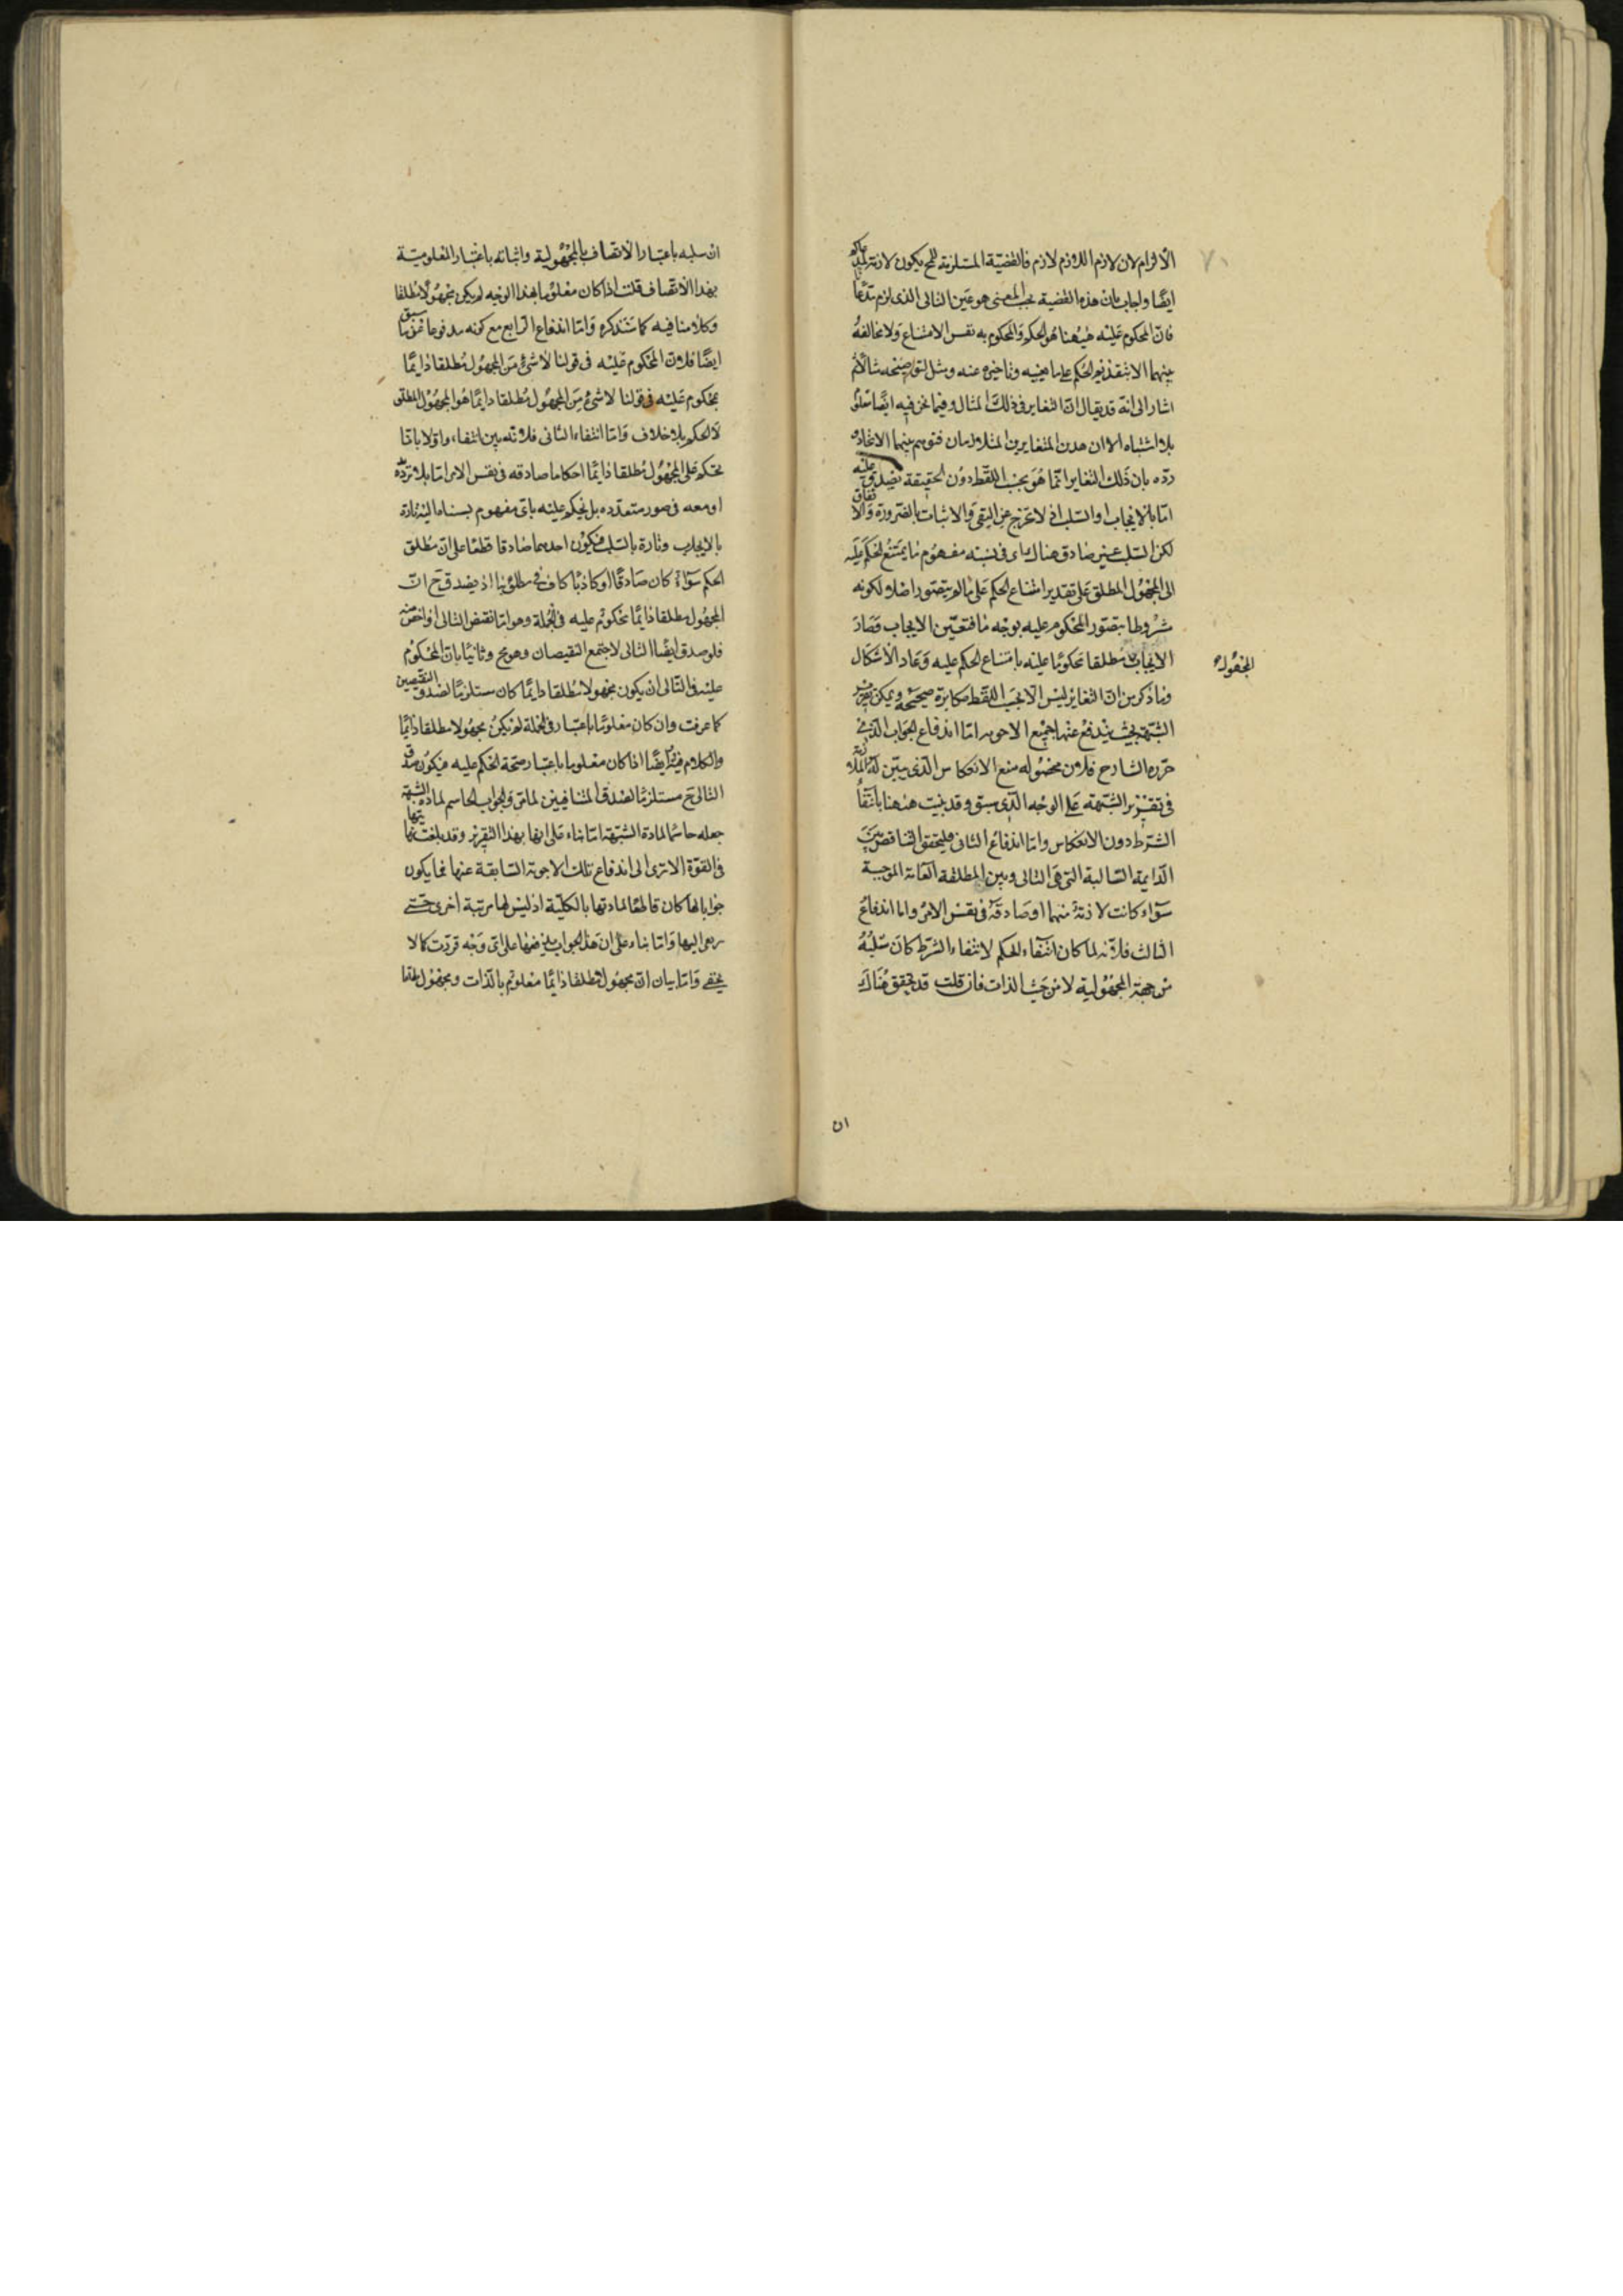 الالزام لان لازم اللازم لازم فالقضية المستلزمة للمح يكون لازمة
ايضا واجاب بان هذه القضية بحسب المعنى هو عين التالى الذى لزم
فان المحكوم عليه ههنا هو الحكم والمحكوم به نفس الامتناع ولا مخالفة
بينهما الا بتقديم الحكم على ما فيه وتاخيره عنه ومثل
اشار الى انه قد يقال ان التغاير فى ذلك المثال وفيما نحن فيه ايضا
بلا اشتباه الا ان هذين المتغايرين المتلازمان فتوهم بينهما الاتحاد
رده بان ذلك التغاير انما هو بحسب اللفظ دون الحقيقة تصدق عليه
اما بالايجاب او السلب اذ لا مخرج عن النفى والاثبات بالضرورة والا
لكن السلب غير صادق هناك اى فى نسبة مفهوم ما يمتنع الحكم عليه
الى المجهول المطلق على تقدير امتناع الحكم على ما لم يتصور اصلا ولكونه
مشروطا بتصور المحكوم عليه بوجه ما فتعين الايجاب وصار
المجهول
الايجاب مطلقا محكوما عليه بامتناع الحكم عليه وعاد الاشكال
وما ذكر من ان التغاير ليس الا بحسب اللفظ مكابرة صحيحة ويمكن تقرير
الشبهة بحيث يندفع عنها جميع الاجوبه اما اندفاع الجواب الذى
حرره الشارح فلان محصوله منع الانعكاس الذى يبين به الملازمة
فى تقرير الشبهة على الوجه الذى سبق وقد بنيت ههنا بانتفاء
الشرط دون الانعكاس واما اندفاع الثانى فليتحقق التناقض بين
الدايمة السالبة التى هى التالى وبين المطلقة العامة الموجبة
سواء كانت لازمة منهما او صادقة فى نفس الامر واما اندفاع
الثالث فلانه لما كان انتفاء الحكم لانتفاء الشرط كان سلبه
من جهة المجهولية لا من حيث الذات فان قلت قد تحقق هناك
ان
ان سلبه باعتبار الاتصاف بالمجهولية واثباته باعتبار المعلومية
بهذا الاتصاف قلت اذا كان معلوما بهذا الوجه لم يكن مجهولا مطلقا
وكلامنا فيه كما سنذكره واما اندفاع الرابع مع كونه مدفوعا سبق
ايضا فلان المحكوم عليه فى قولنا لا شئ من المجهول مطلقا دايما
بمحكوم عليه فى قولنا لا شئ من المجهول مطلقا دايما هو المجهول المطلق
لا الحكم بلا خلاف واما انتفاء الثانى فلانه بين انتفاءه اولا بانا
نحكم على المجهول مطلقا دايما احكاما صادقه فى نفس الامر اما بلا تردد
او معه فى صور متعدده بل نحكم عليه باى مفهوم نسبناه اليه تارة
بالايجاب وتارة بالسلب فيكون احدهما صادقا قطعا على ان مطلق
الحكم سواء كان صادقا او كاذبا كاف فى مطلوبنا اذ يصدق ح ان
المجهول مطلقا دايما محكوم عليه فى الجملة وهو اما نقيض التالى او اخص منه
فلو صدق ايضا التالى لاجتمع النقيضان وهو مح وثانيا بان المحكوم
عليه فى التالى ان يكون مجهولا مطلقا دايما كان مستلزما لصدق النقيضين
كما عرفت وان كان معلوما باعتبار فى الجملة لم يكن مجهولا مطلقا دايما
والكلام فيه وايضا اذا كان معلوما باعتبار صحة الحكم عليه فيكون صدق
التالى ح مستلزما لصدق المتنافيين لما مر والجواب الحاسم لمادة الشبهة
جعله حاسما لمادة الشبهة اما بناء على انها بهذا التقرير وقد بلغت نهايتها
فى القوة الا ترى الى اندفاع تلك الاجوبة السابقة عنها فما يكون
جوابا لها كان قاطعا لمادتها بالكلية اذ ليس لها مرتبة اخرى حتى
اليها واما بناء على ان هذا الجواب على اى وجه قررت كما لا
يخفى واما بيان ان مجهول مطلقا دايما معلوم بالذات ومجهول مطلقا